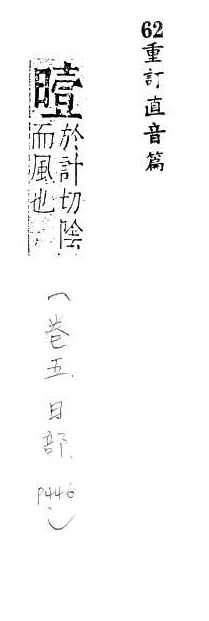 62重訂直音篇
曀
於計切陰
而風也
(卷五.日部.P446.)